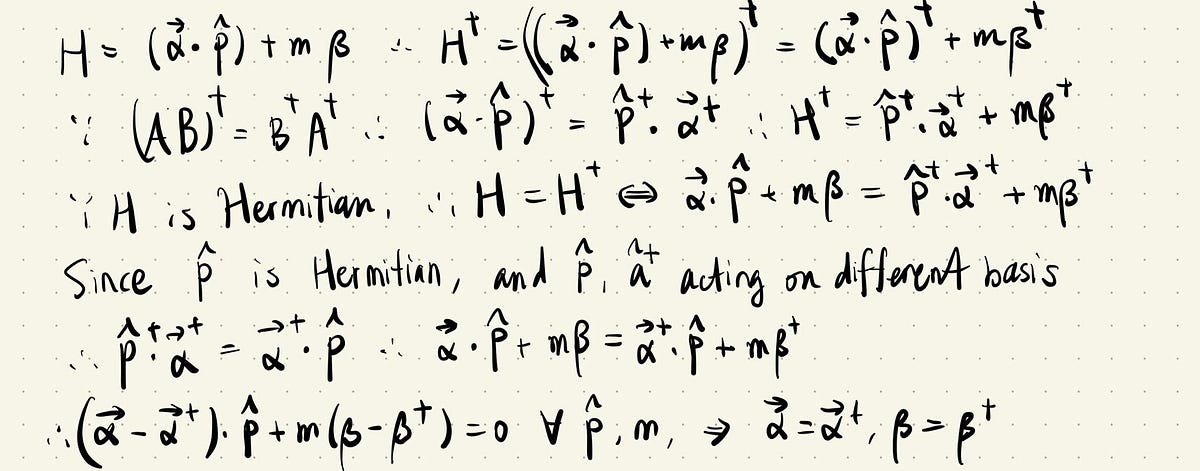 H = (α⃗·p̂) + mβ ∴ H† = ((α⃗·p̂) + mβ)† = (α⃗·p̂)† + mβ†
∵ (AB)† = B†A† ∴ (α⃗·p̂)† = p̂†·α⃗† ∴ H† = p̂†·α⃗† + mβ†
∵ H is Hermitian, ∴ H = H† ⇔ α⃗·p̂ + mβ = p̂†·α⃗† + mβ†
Since p̂ is Hermitian, and p̂, â† acting on different basis
∴ p̂†·α⃗† = α⃗†·p̂ ∴ α⃗·p̂ + mβ = α⃗†·p̂ + mβ†
∴ (α⃗ - α⃗†)·p̂ + m(β - β†) = 0 ∀ p̂, m, ⇒ α⃗ = α⃗†, β = β†